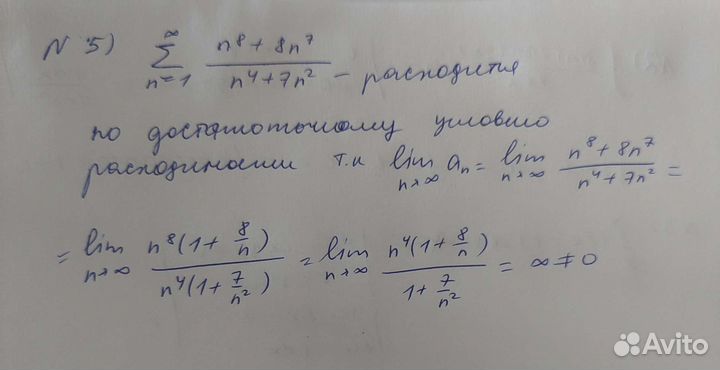 N 5) ∞∑n=1 (n⁸ + 8n⁷)/(n⁴ + 7n²) – расходится
по достаточному условию
расходимости т.к lim n→∞ aₙ = lim n→∞ (n⁸ + 8n⁷)/(n⁴ + 7n²) =
= lim n→∞ (n⁸(1 + 8/n))/(n⁴(1 + 7/n²)) = lim n→∞ (n⁴(1 + 8/n))/(1 + 7/n²) = ∞ ≠ 0
Avito